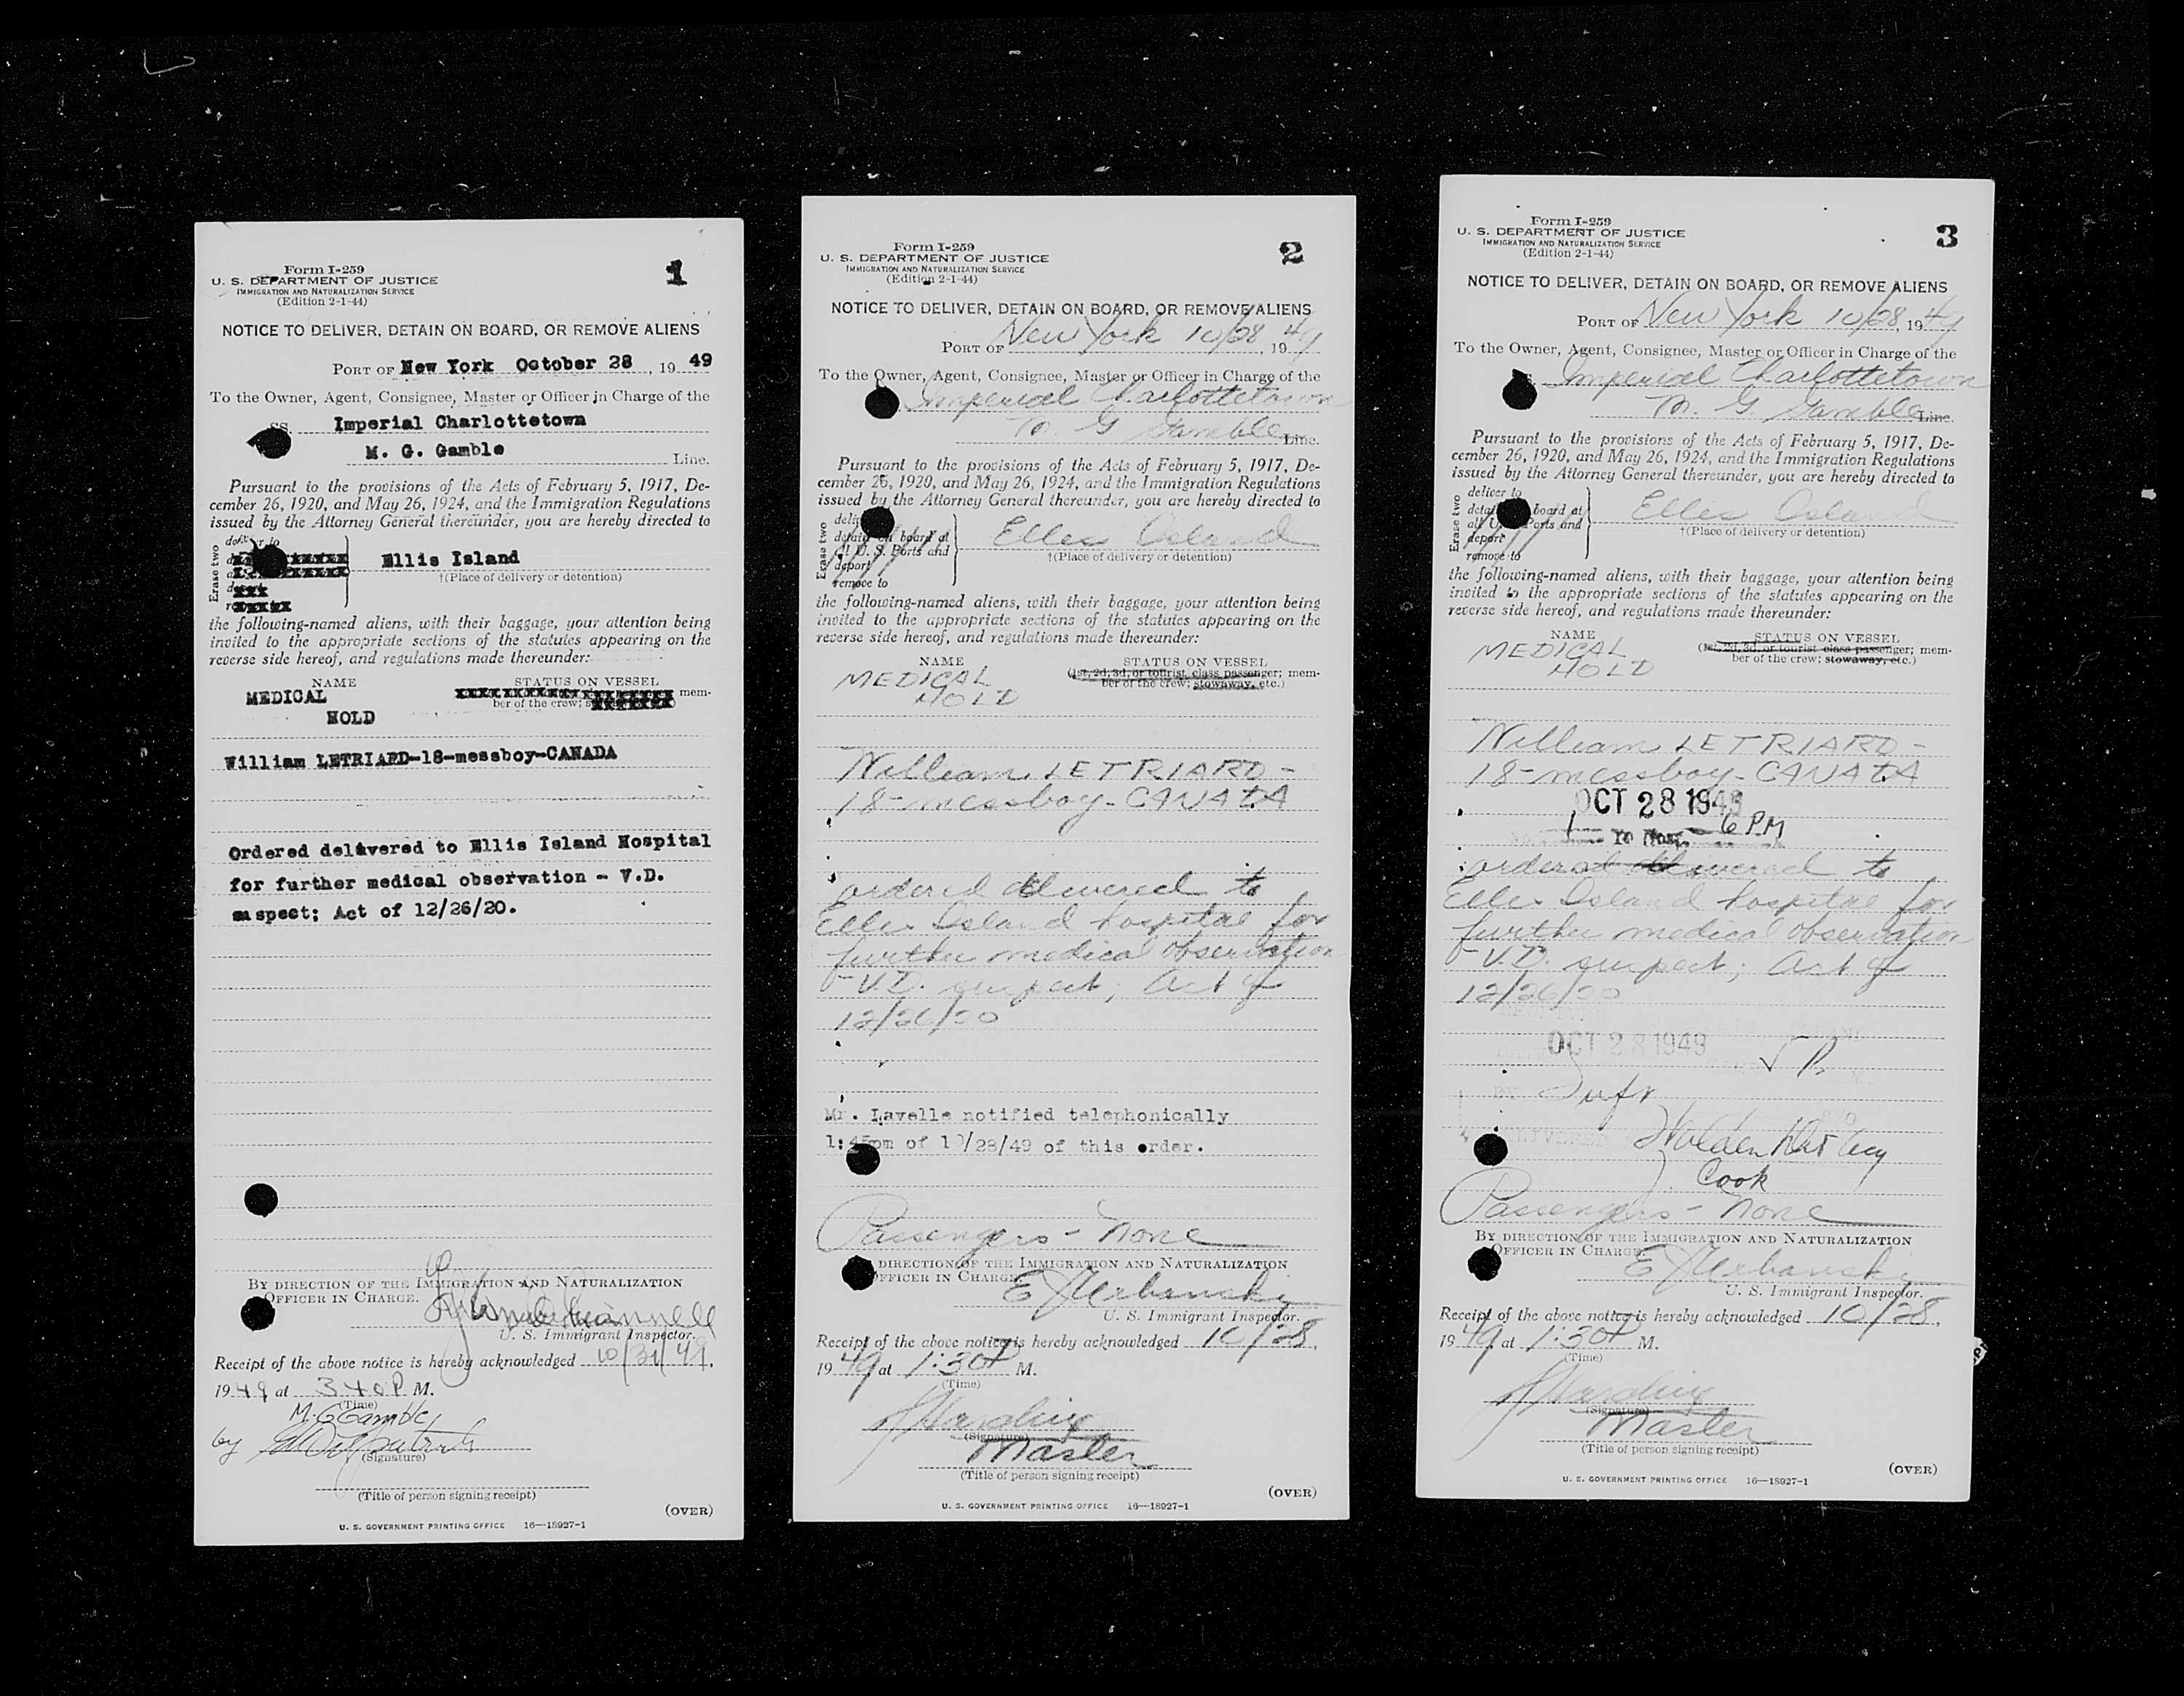 Form I-259
U. S. DEPARTMENT OF JUSTICE
IMMIGRATION AND NATURALIZATION SERVICE
(Edition 2-1-44)
1
NOTICE TO DELIVER, DETAIN ON BOARD, OR REMOVE ALIENS
PORT OF New York October 28, 19 49
To the Owner, Agent, Consignee, Master or Officer in Charge of the
SS. Imperial Charlottetown
M. G. Gamble Line.
Pursuant to the provisions of the Acts of February 5, 1917, De-
cember 26, 1920, and May 26, 1924, and the Immigration Regulations
issued by the Attorney General thereunder, you are hereby directed to
Erase two
Ellis Island
†(Place of delivery or detention)
the following-named aliens, with their baggage, your attention being
invited to the appropriate sections of the statutes appearing on the
reverse side hereof, and regulations made thereunder:
NAME STATUS ON VESSEL
MEDICAL mem-
ber of the crew;
HOLD
William LETRIARD-18-messboy-CANADA
Ordered delivered to Ellis Island Hospital
for further medical observation - V.D.
suspect; Act of 12/26/20.
BY DIRECTION OF THE IMMIGRATION AND NATURALIZATION
OFFICER IN CHARGE.
U. S. Immigrant Inspector.
Receipt of the above notice is hereby acknowledged 10/31/49,
1949 at 340P M.
(Time)
M. G Gamble
by
(Signature)
(Title of person signing receipt)
(OVER)
U. S. GOVERNMENT PRINTING OFFICE 16—18927-1
Form I-259
U. S. DEPARTMENT OF JUSTICE
IMMIGRATION AND NATURALIZATION SERVICE
(Edition 2-1-44)
2
NOTICE TO DELIVER, DETAIN ON BOARD, OR REMOVE ALIENS
PORT OF New York 10/28, 1949
To the Owner, Agent, Consignee, Master or Officer in Charge of the
Imperial Charlottetown
M. G Gamble Line.
Pursuant to the provisions of the Acts of February 5, 1917, De-
cember 26, 1920, and May 26, 1924, and the Immigration Regulations
issued by the Attorney General thereunder, you are hereby directed to
Erase two
detain on board at
all U. S. Ports and
deport
remove to
Ellis Island
†(Place of delivery or detention)
the following-named aliens, with their baggage, your attention being
invited to the appropriate sections of the statutes appearing on the
reverse side hereof, and regulations made thereunder:
NAME STATUS ON VESSEL
MEDICAL (1st, 2d, 3d, or tourist class passenger; mem-
ber of the crew; stowaway, etc.)
HOLD
William LETRIARD -
18- messboy - CANADA
ordered delivered to
Ellis Island hospital for
further medical observation
- V.D. suspect; Act of
12/26/20
Mr. Lavelle notified telephonically
1:45pm of 10/28/49 of this order.
Passengers - None
DIRECTION OF THE IMMIGRATION AND NATURALIZATION
OFFICER IN CHARGE
E Urbanski
U. S. Immigrant Inspector.
Receipt of the above notice is hereby acknowledged 10/28,
1949 at 1:30P M.
(Time)
Harding
(Signature)
Master
(Title of person signing receipt)
(OVER)
U. S. GOVERNMENT PRINTING OFFICE 16—18927-1
Form I-259
U. S. DEPARTMENT OF JUSTICE
IMMIGRATION AND NATURALIZATION SERVICE
(Edition 2-1-44)
3
NOTICE TO DELIVER, DETAIN ON BOARD, OR REMOVE ALIENS
PORT OF New York 10/28, 1949
To the Owner, Agent, Consignee, Master or Officer in Charge of the
Imperial Charlottetown
M. G. Gamble Line.
Pursuant to the provisions of the Acts of February 5, 1917, De-
cember 26, 1920, and May 26, 1924, and the Immigration Regulations
issued by the Attorney General thereunder, you are hereby directed to
Erase two
deliver to
board at
Ports and
deport
remove to
Ellis Island
†(Place of delivery or detention)
the following-named aliens, with their baggage, your attention being
invited to the appropriate sections of the statutes appearing on the
reverse side hereof, and regulations made thereunder:
NAME STATUS ON VESSEL
MEDICAL (1st, 2d, 3d, or tourist class passenger; mem-
ber of the crew; stowaway, etc.)
HOLD
William LETRIARD -
18- messboy - CANADA
OCT 28 1949
6 PM
ordered delivered to
Ellis Island hospital for
further medical observation
- V.D. suspect; Act of
12/26/20
OCT 28 1949
BY
Cook
Passengers - None
BY DIRECTION OF THE IMMIGRATION AND NATURALIZATION
OFFICER IN CHARGE.
E Urbanski
U. S. Immigrant Inspector.
Receipt of the above notice is hereby acknowledged 10/28,
1949 at 1:30P M.
(Time)
Harding
(Signature)
Master
(Title of person signing receipt)
(OVER)
U. S. GOVERNMENT PRINTING OFFICE 16—18927-1